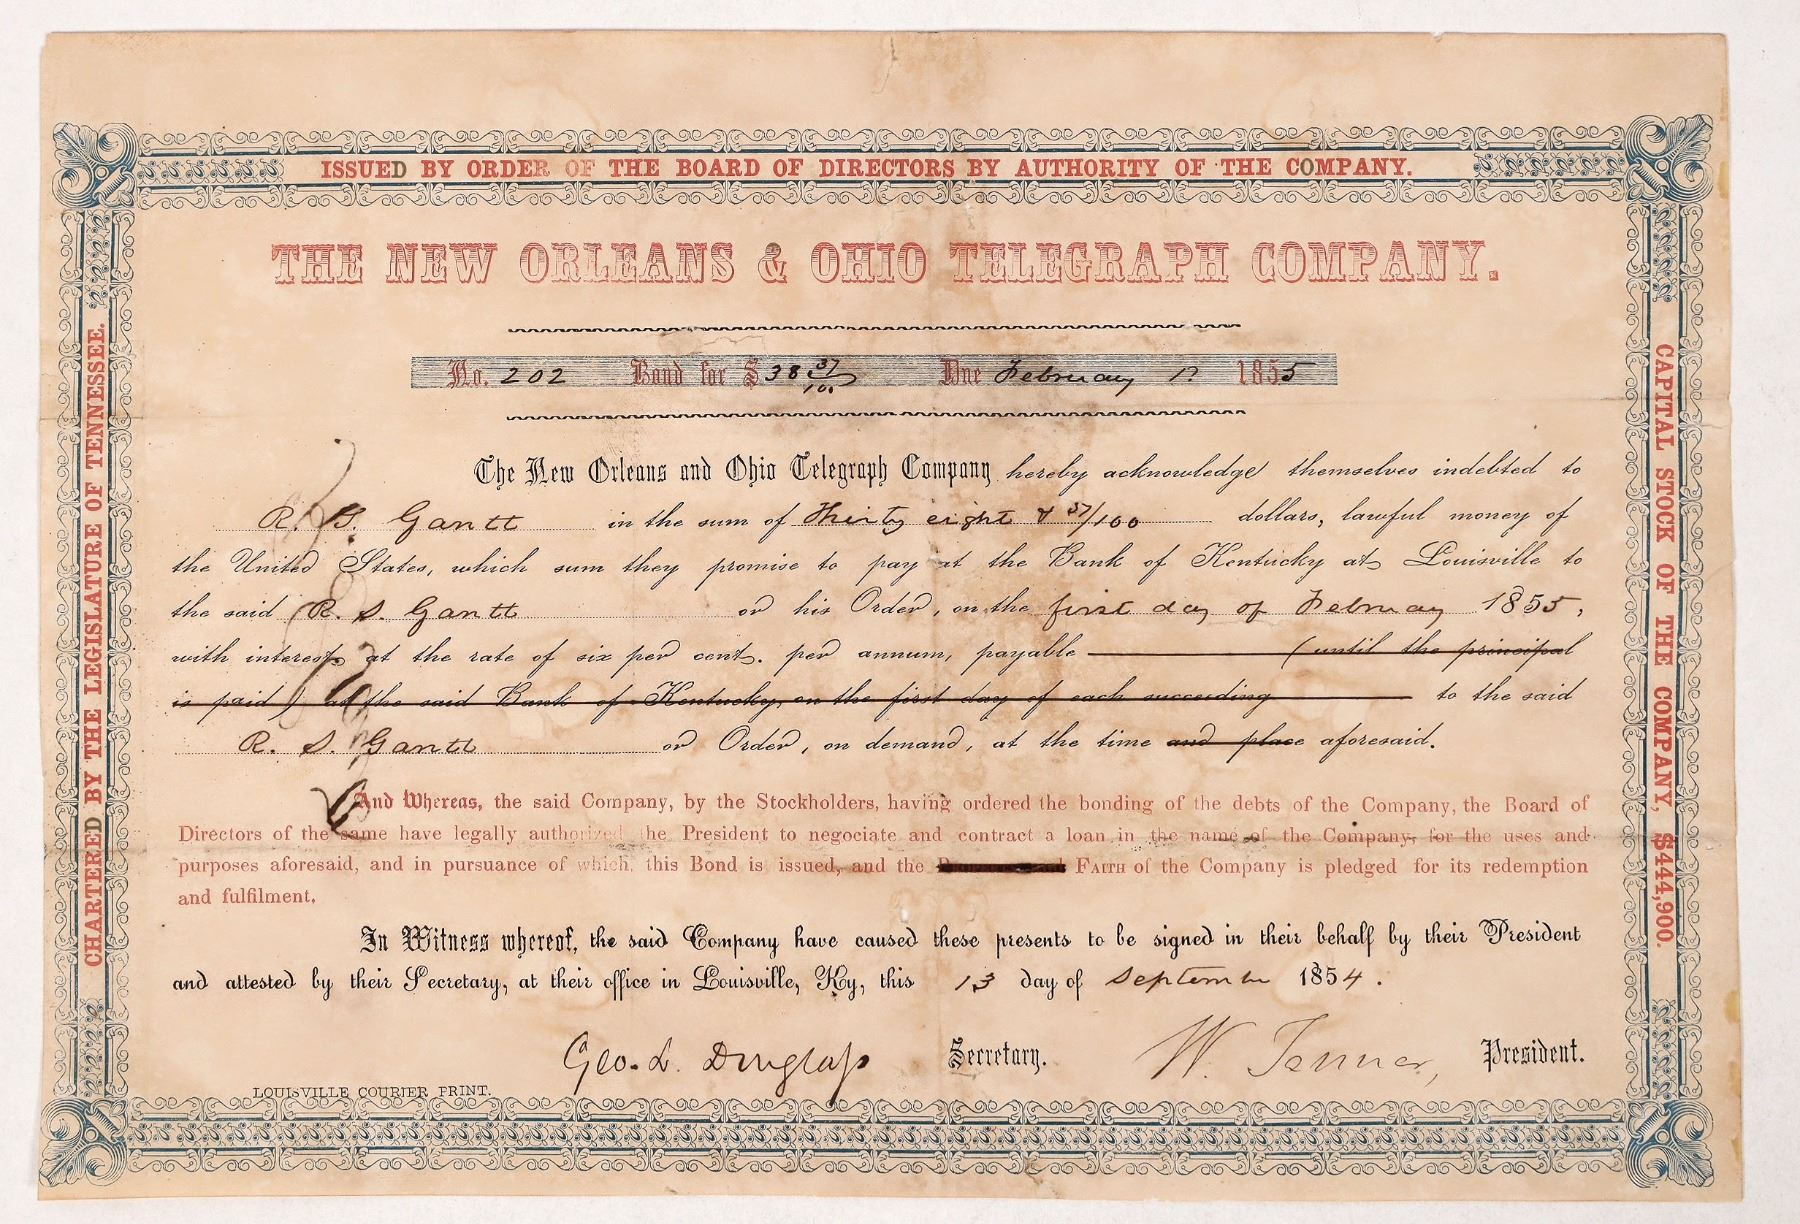 ISSUED BY ORDER OF THE BOARD OF DIRECTORS BY AUTHORITY OF THE COMPANY.
THE NEW ORLEANS & OHIO TELEGRAPH COMPANY.
No. 202 Bond for $38 37/100 Due February 1 1855
The New Orleans and Ohio Telegraph Company hereby acknowledge themselves indebted to
R. S. Gantt in the sum of Thirty eight & 37/100 dollars, lawful money of
the United States, which sum they promise to pay at the Bank of Kentucky at Louisville to
the said R. S. Gantt or his Order, on the first day of February 1855,
with interest at the rate of six per cent. per annum, payable (until the principal
is paid) at the said Bank of Kentucky, on the first day of each succeeding to the said
R. S. Gantt or Order, on demand, at the time and place aforesaid.
And Whereas, the said Company, by the Stockholders, having ordered the bonding of the debts of the Company, the Board of
Directors of the same have legally authorized the President to negociate and contract a loan in the name of the Company, for the uses and
purposes aforesaid, and in pursuance of which, this Bond is issued, and the FAITH of the Company is pledged for its redemption
and fulfilment.
In Witness whereof, the said Company have caused these presents to be signed in their behalf by their President
and attested by their Secretary, at their office in Louisville, Ky, this 13 day of September 1854.
Geo. L. Douglass Secretary. W. Tanner, President.
LOUISVILLE COURIER PRINT.
CHARTERED BY THE LEGISLATURE OF TENNESSEE.
CAPITAL STOCK OF THE COMPANY, $444,900.